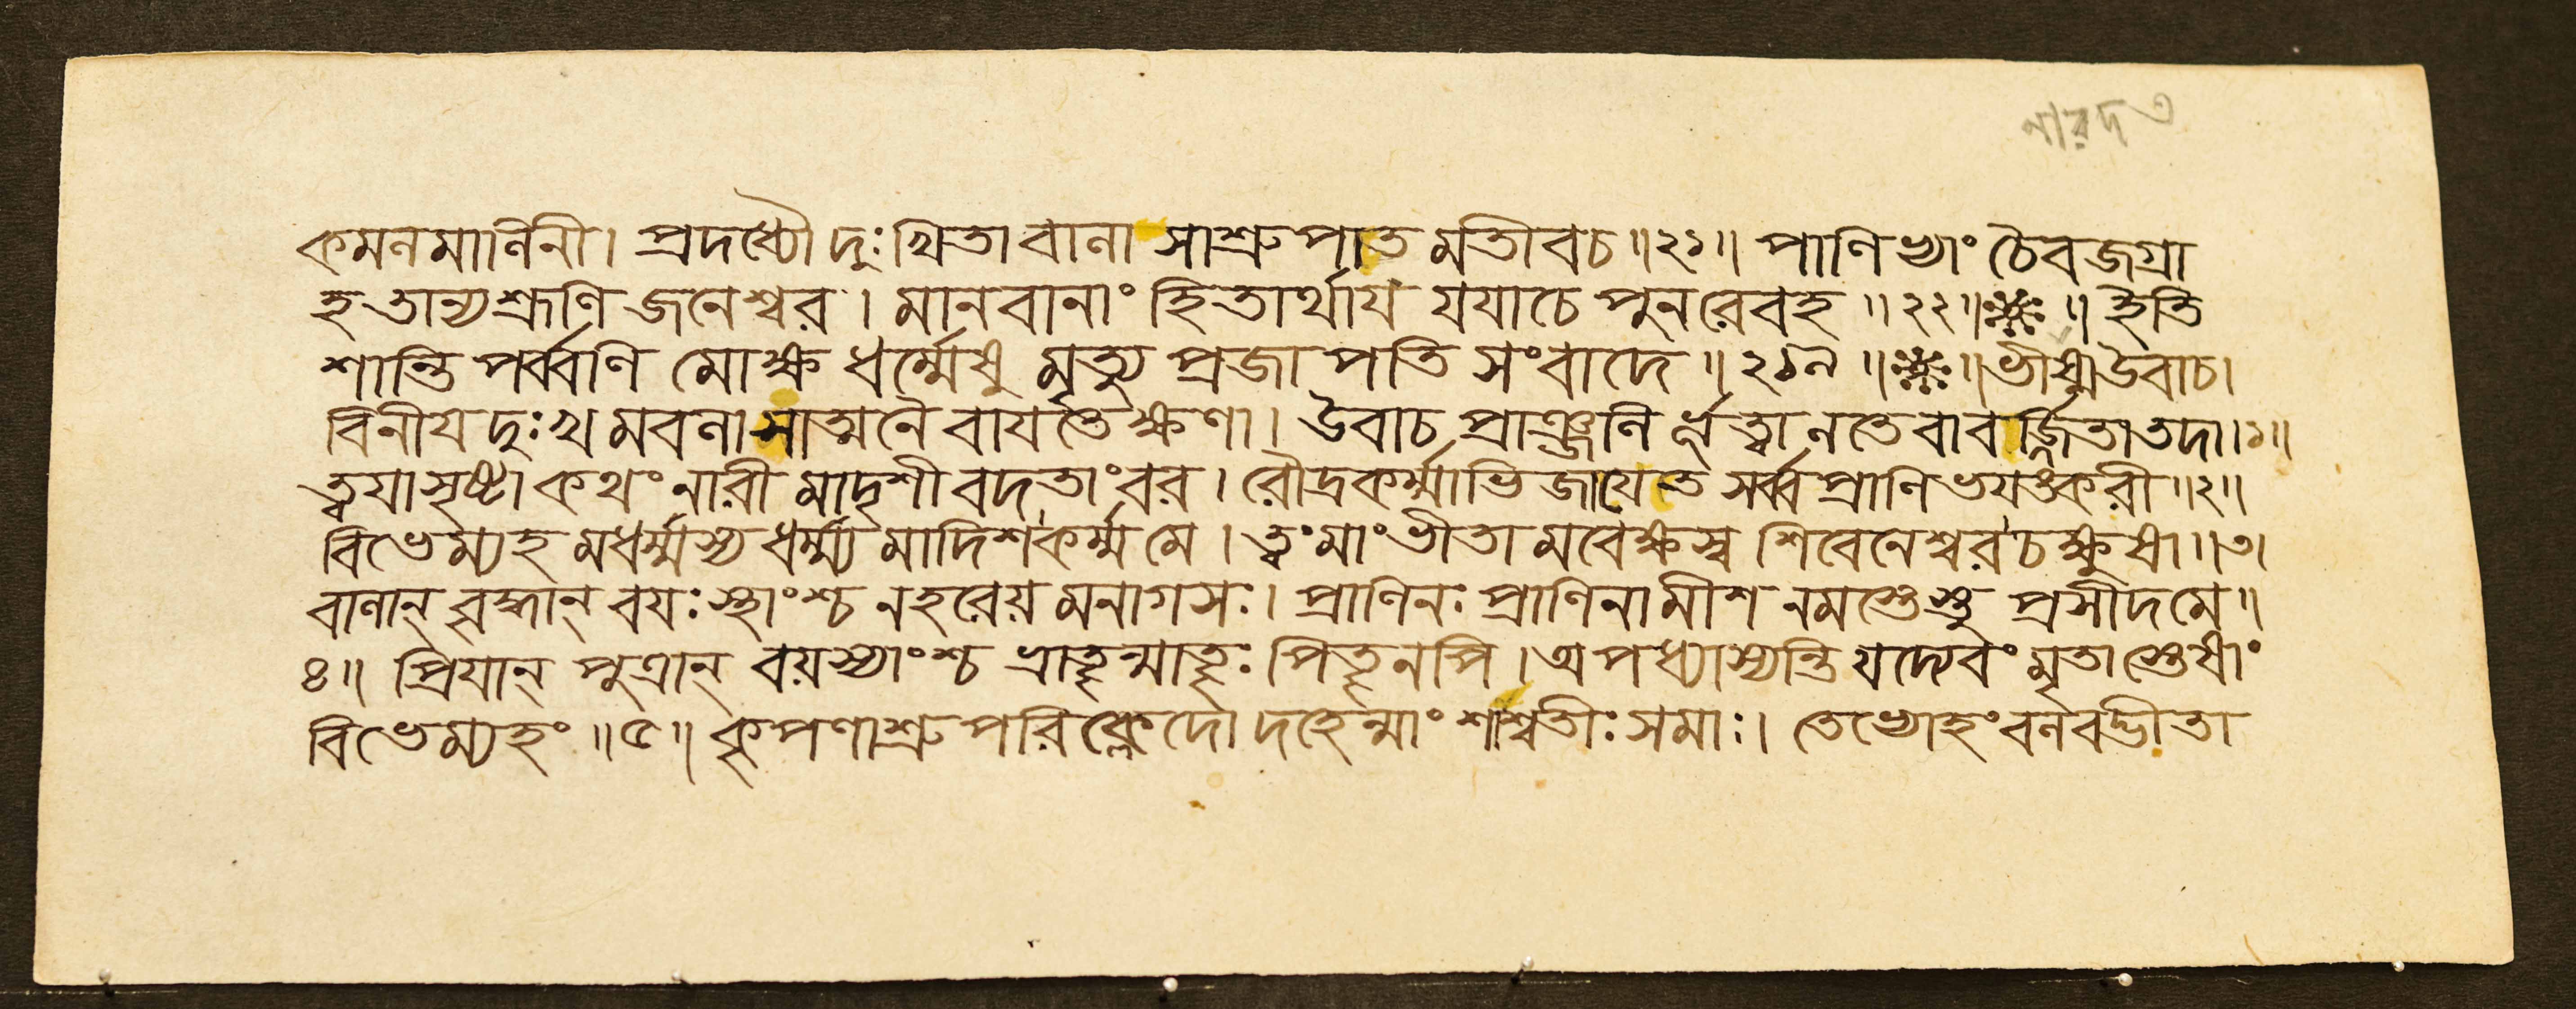 নারদ ৩
কমনমানিনী। প্রদধ্যৌ দুঃখিতা বালা সাশ্রুপাতমতীবচ॥২১॥ পাণিভ্যাং চৈবজগ্রা
হ তান্যশ্রূণি জনেশ্বর। মানবানাং হিতার্থায় যযাচে পুনরেবহ॥২২॥❈॥ ইতি
শান্তিপর্ব্বণি মোক্ষধর্ম্মেষু মৃত্যু প্রজাপতি সংবাদে॥২৫৭॥❈॥ভীষ্মউবাচ।
বিনীয়দুঃখমবলা সাত্মনৈবায়তেক্ষণা। উবাচ প্রাঞ্জলির্ভূত্বা লতেবাবর্জ্জিতাতদা।১॥
ত্বয়াসৃষ্টা কথং নারী মাদৃশী বদতাংবর। রৌদ্রকর্ম্মাভিজায়েত সর্ব্বপ্রাণিভয়ঙ্করী॥২॥
বিভেম্যহমধর্ম্মস্য ধর্ম্ম্যমাদিশকর্ম্ম মে। ত্বংমাংভীতামবেক্ষস্ব শিবেনেশ্বরচক্ষুষা॥৩।
বালান্ বৃদ্ধান্ বয়ঃস্থাংশ্চ নহরেয়মনাগসঃ। প্রাণিনঃ প্রাণিনামীশ নমস্তেস্তু প্রসীদমে॥
৪॥ প্রিয়ান্ পুত্রান্ বয়স্যাংশ্চ ভ্রাতৄন্মাতৄঃ পিতৄনপি। অপধ্যাস্যন্তি যদ্যেবং মৃতাস্তেষাং
বিভেম্যহং॥৫॥ কৃপণাশ্রুপরিক্লেদো দহেন্মাং শাশ্বতীঃসমাঃ। তেভ্যোহং বলবদ্ভীতা